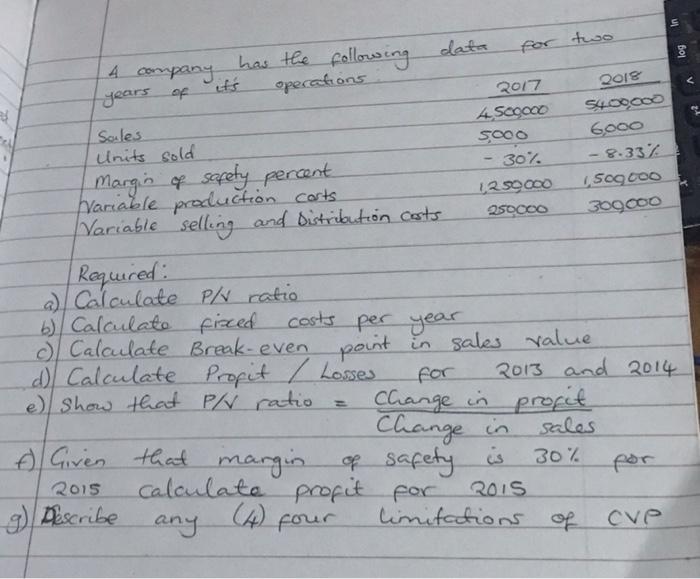 A company has the following data for two
years of it's operations:
2017 2018
Sales 4,500,000 5400,000
Units sold 5,000 6,000
Margin of safety percent - 30% - 8.33%
Variable production costs 1,250,000 1,500,000
Variable selling and Distribution costs 250,000 300,000
Required:
a) Calculate P/V ratio
b) Calculate fixed costs per year
c) Calculate Break-even point in sales value
d) Calculate Profit / Losses for 2013 and 2014
e) Show that P/V ratio = Change in profit
Change in sales
f) Given that margin of safety is 30% for
2015 calculate profit for 2015
g) Describe any (4) four limitations of CVP